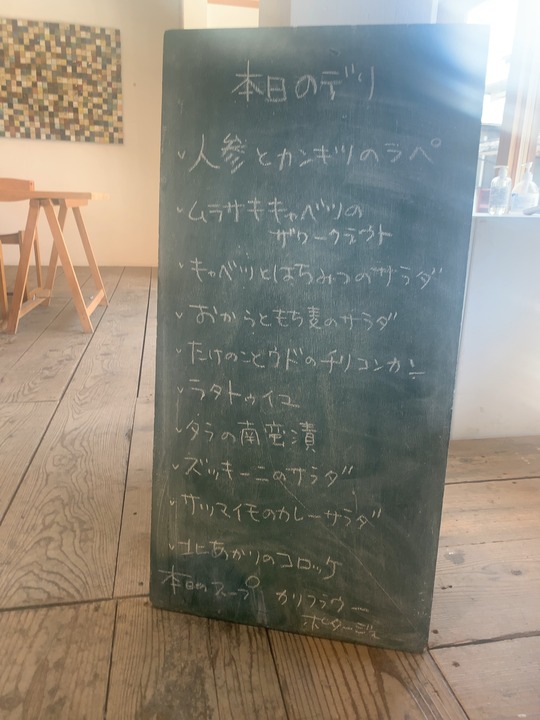 本日のデリ
✓人参とカンキツのラペ
✓ムラサキキャベツの
ザワークラウト
✓キャベツとはちみつのサラダ
✓おからともち麦のサラダ
✓たけのことウドのチリコンカン
✓ラタトゥイユ
✓タラの南蛮漬
✓ズッキーニのサラダ
✓サツマイモのカレーサラダ
✓北あかりのコロッケ
本日のスープ カリフラワー
ポタージュ